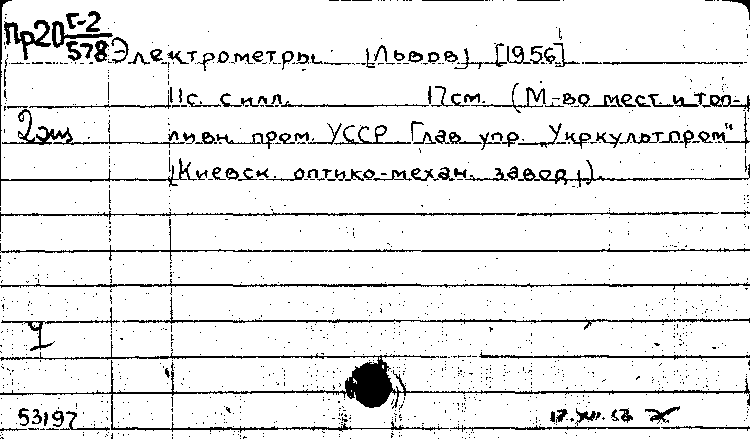 Пр20 Г-2
578
Электрометры [Львов], [1956]
11с. с илл. 17см. (М-во мест. и топ-
2 экз ливн. пром. УССР Глав. упр. „Укркультпром"
[Киевск. оптико-механ. завод]).
53197